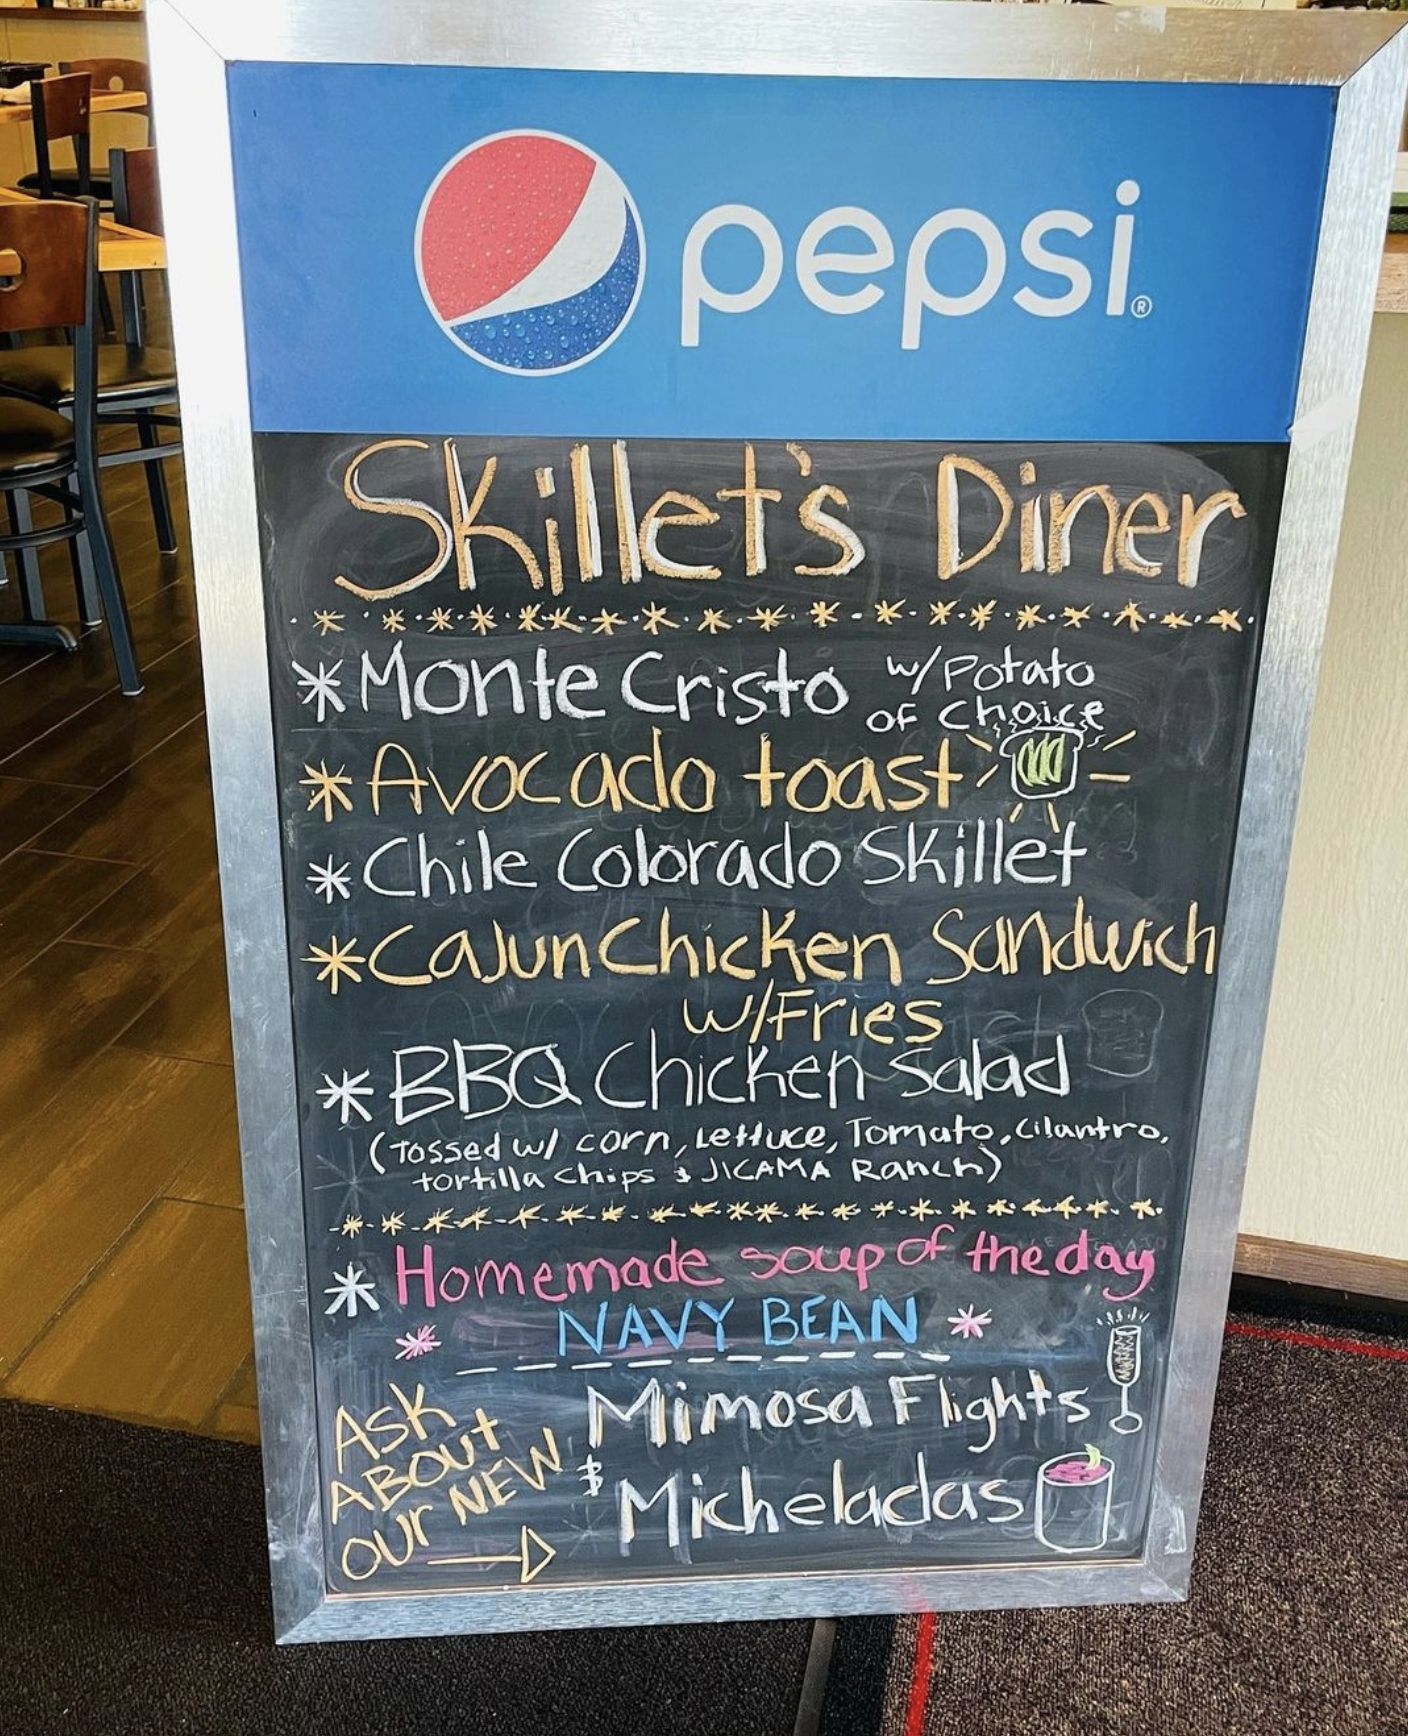 pepsi®
Skillet's Diner
*Monte Cristo w/Potato
of choice
*Avocado toast
*Chile Colorado Skillet
*Cajun Chicken Sandwich
w/Fries
*BBQ Chicken salad
(Tossed w/ corn, Lettuce, Tomato, cilantro,
tortilla chips & JICAMA Ranch)
*Homemade soup of the day
* NAVY BEAN *
ASK
ABOUT
OUr NEW
Mimosa Flights
& Micheladas